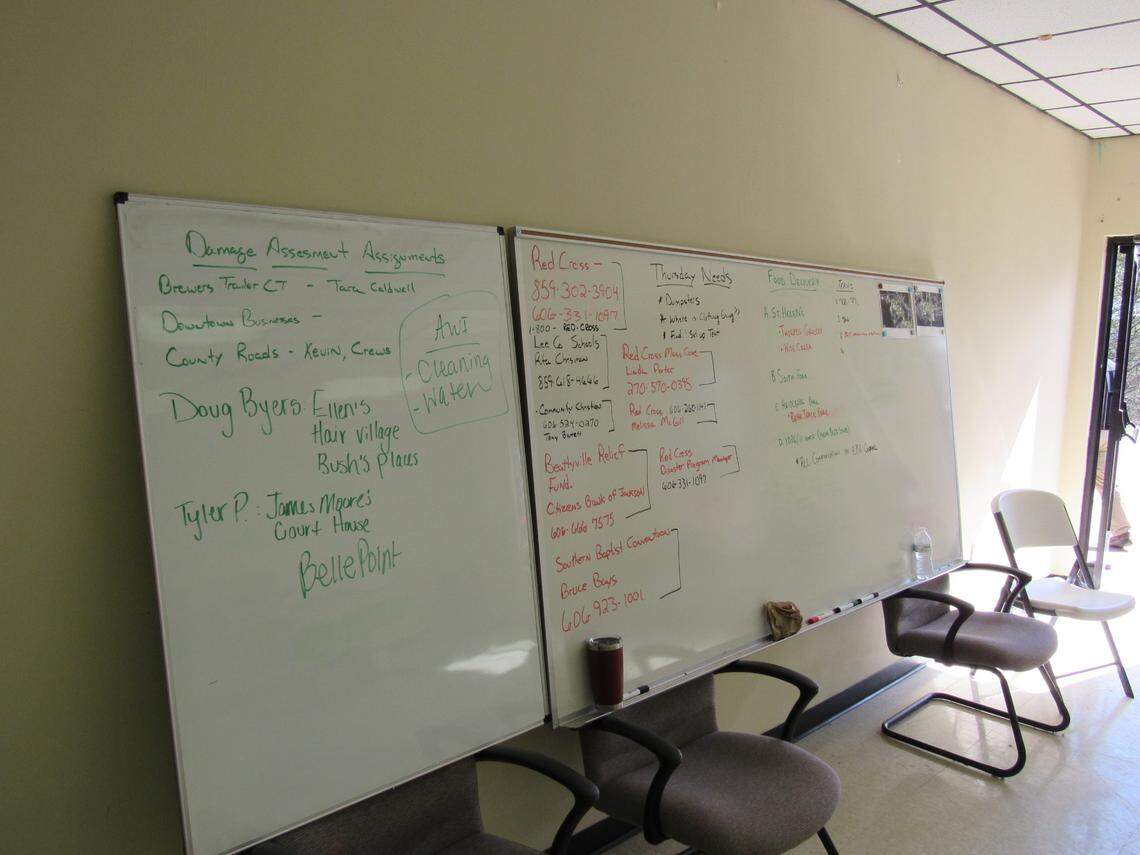 Damage Assesment Assignments
Brewers Trailer CT - Tara Caldwell
Downtown Businesses -
County Roads - Kevin, Crews
AWI
- Cleaning
- Water
Doug Byers: Ellen's
Hair village
Bush's places
Tyler P.: James Moore's
Court House
Belle Point
Red Cross -
859-302-3904
606-331-1097
1-800-RED-CROSS
Lee Co Schools
Rita
859-618-4666
- Community Christian
606 524-0270
Tony Barrett
Beattyville Relief
Fund.
Citizens Bank of Jackson
606-666 7575
Southern Baptist Convention
Bruce Bays
606-923-1001
Thursday Needs
* Dumpsters
* Where is Clothing Going??
* End Set up Tent
Red Cross Mass Care
Linda Porter
270-570-0395
Red Cross
Melissa McGill
Red Cross
Disaster Program Manager
606-331-1097
Food Delivery
A. St. Helen's
B. South Fork